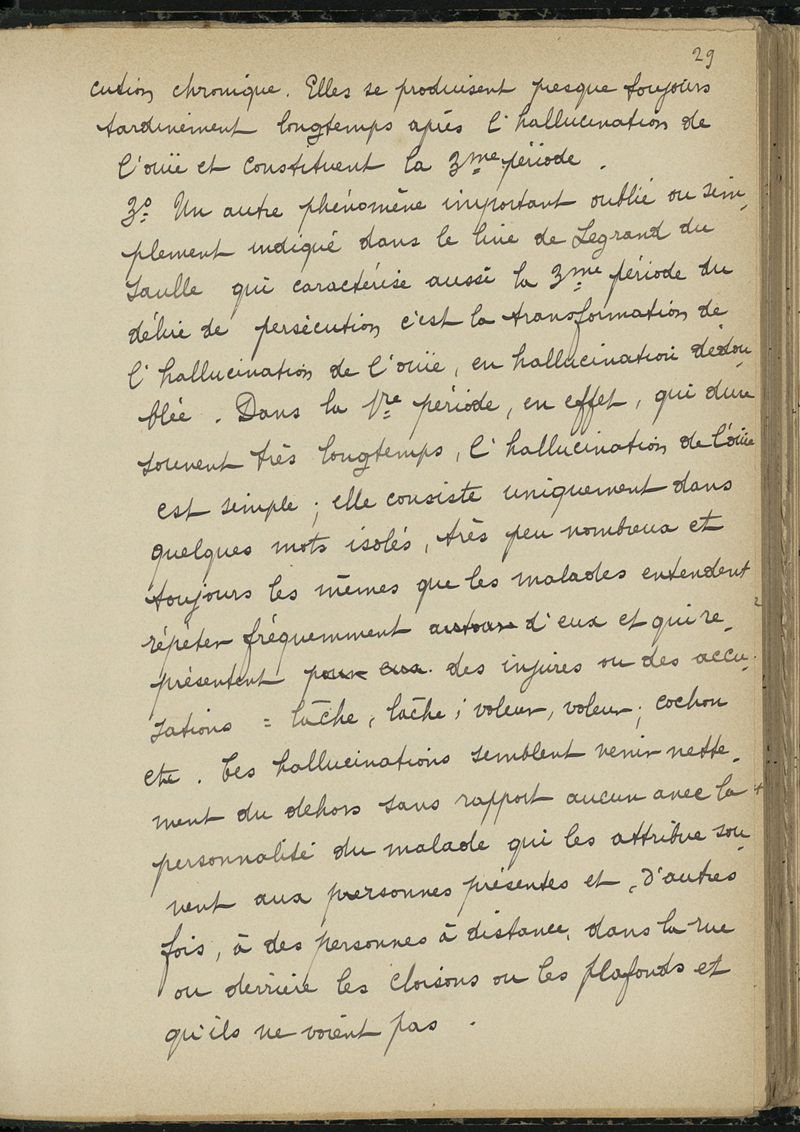 29
cution chronique. Elles se produisent presque toujours
tardivement longtemps après l'hallucination de
l'ouïe et constituent la 3me période.
3o. Un autre phénomène important oublié ou sim-
plement indiqué dans le livre de Legrand du
Saulle qui caractérise aussi la 3me période du
délire de persécution c'est la transformation de
l'hallucination de l'ouïe, en hallucination dédou-
blée. Dans la 1re période, en effet, qui dure
souvent très longtemps, l'hallucination de l'ouïe
est simple; elle consiste uniquement dans
quelques mots isolés, très peu nombreux et
toujours les mêmes que les malades entendent
répéter fréquemment autour d'eux et qui re-
présentent pour eux des injures ou des accu-
sations = lâche, lâche; voleur, voleur; cochon
etc. Ces hallucinations semblent venir nette-
ment du dehors sans rapport aucun avec la
personnalité du malade qui les attribue sou-
vent aux personnes présentes et, d'autres
fois, à des personnes à distance, dans la rue
ou derrière les cloisons ou les plafonds et
qu'ils ne voient pas.